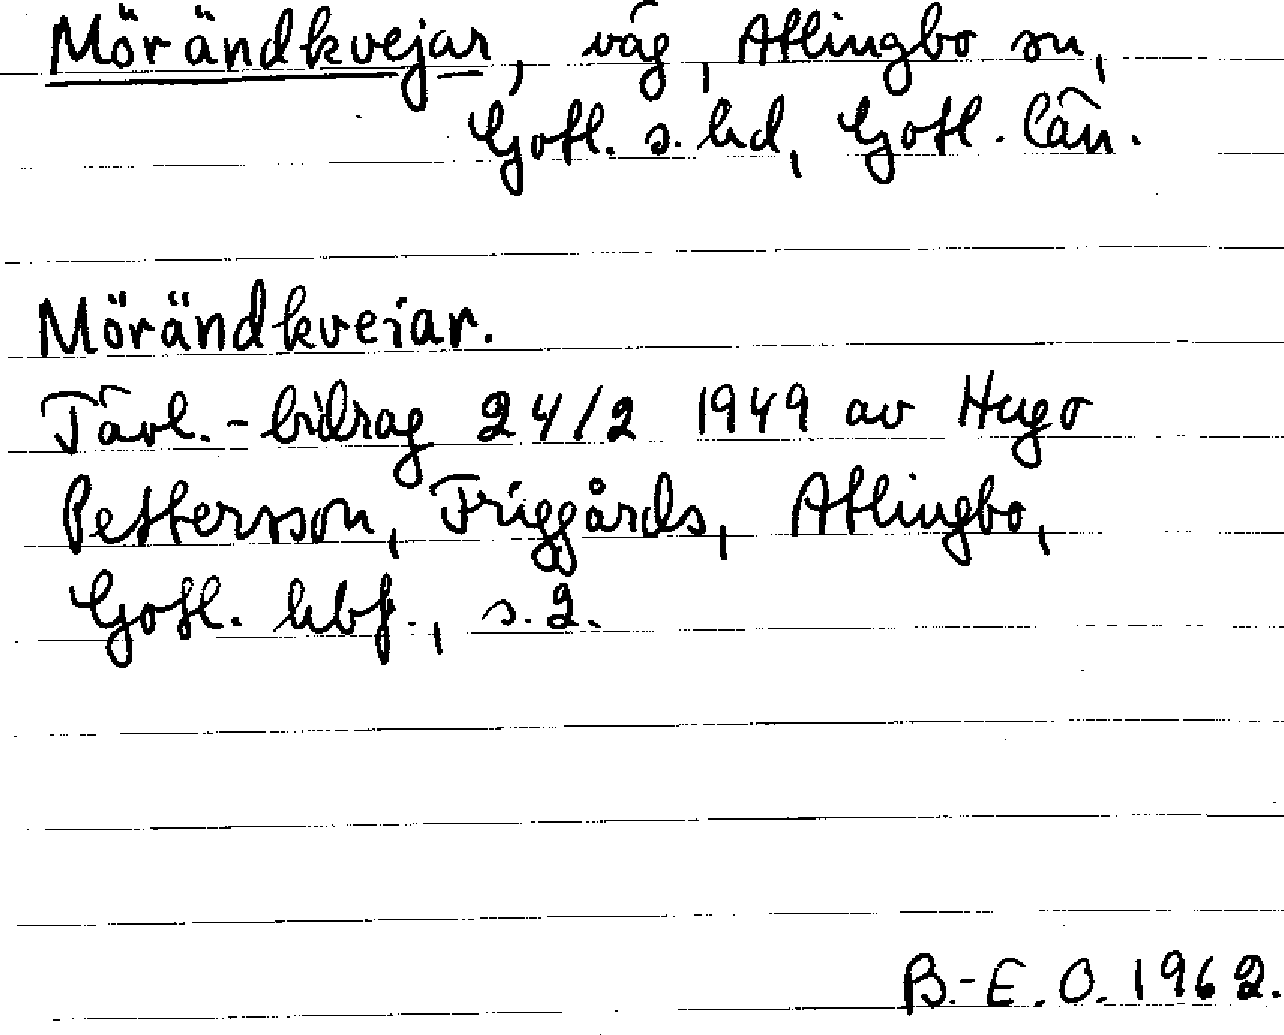 Mörändkvejar, väg, Atlingbo sn,
Gotl. s. hd, Gotl. län.
Mörändkveiar.
Tävl.-bidrag 24/2 1949 av Hugo
Pettersson, Friggårds, Atlingbo,
Gotl. hbf., s. 2.
B.-E. O. 1962.